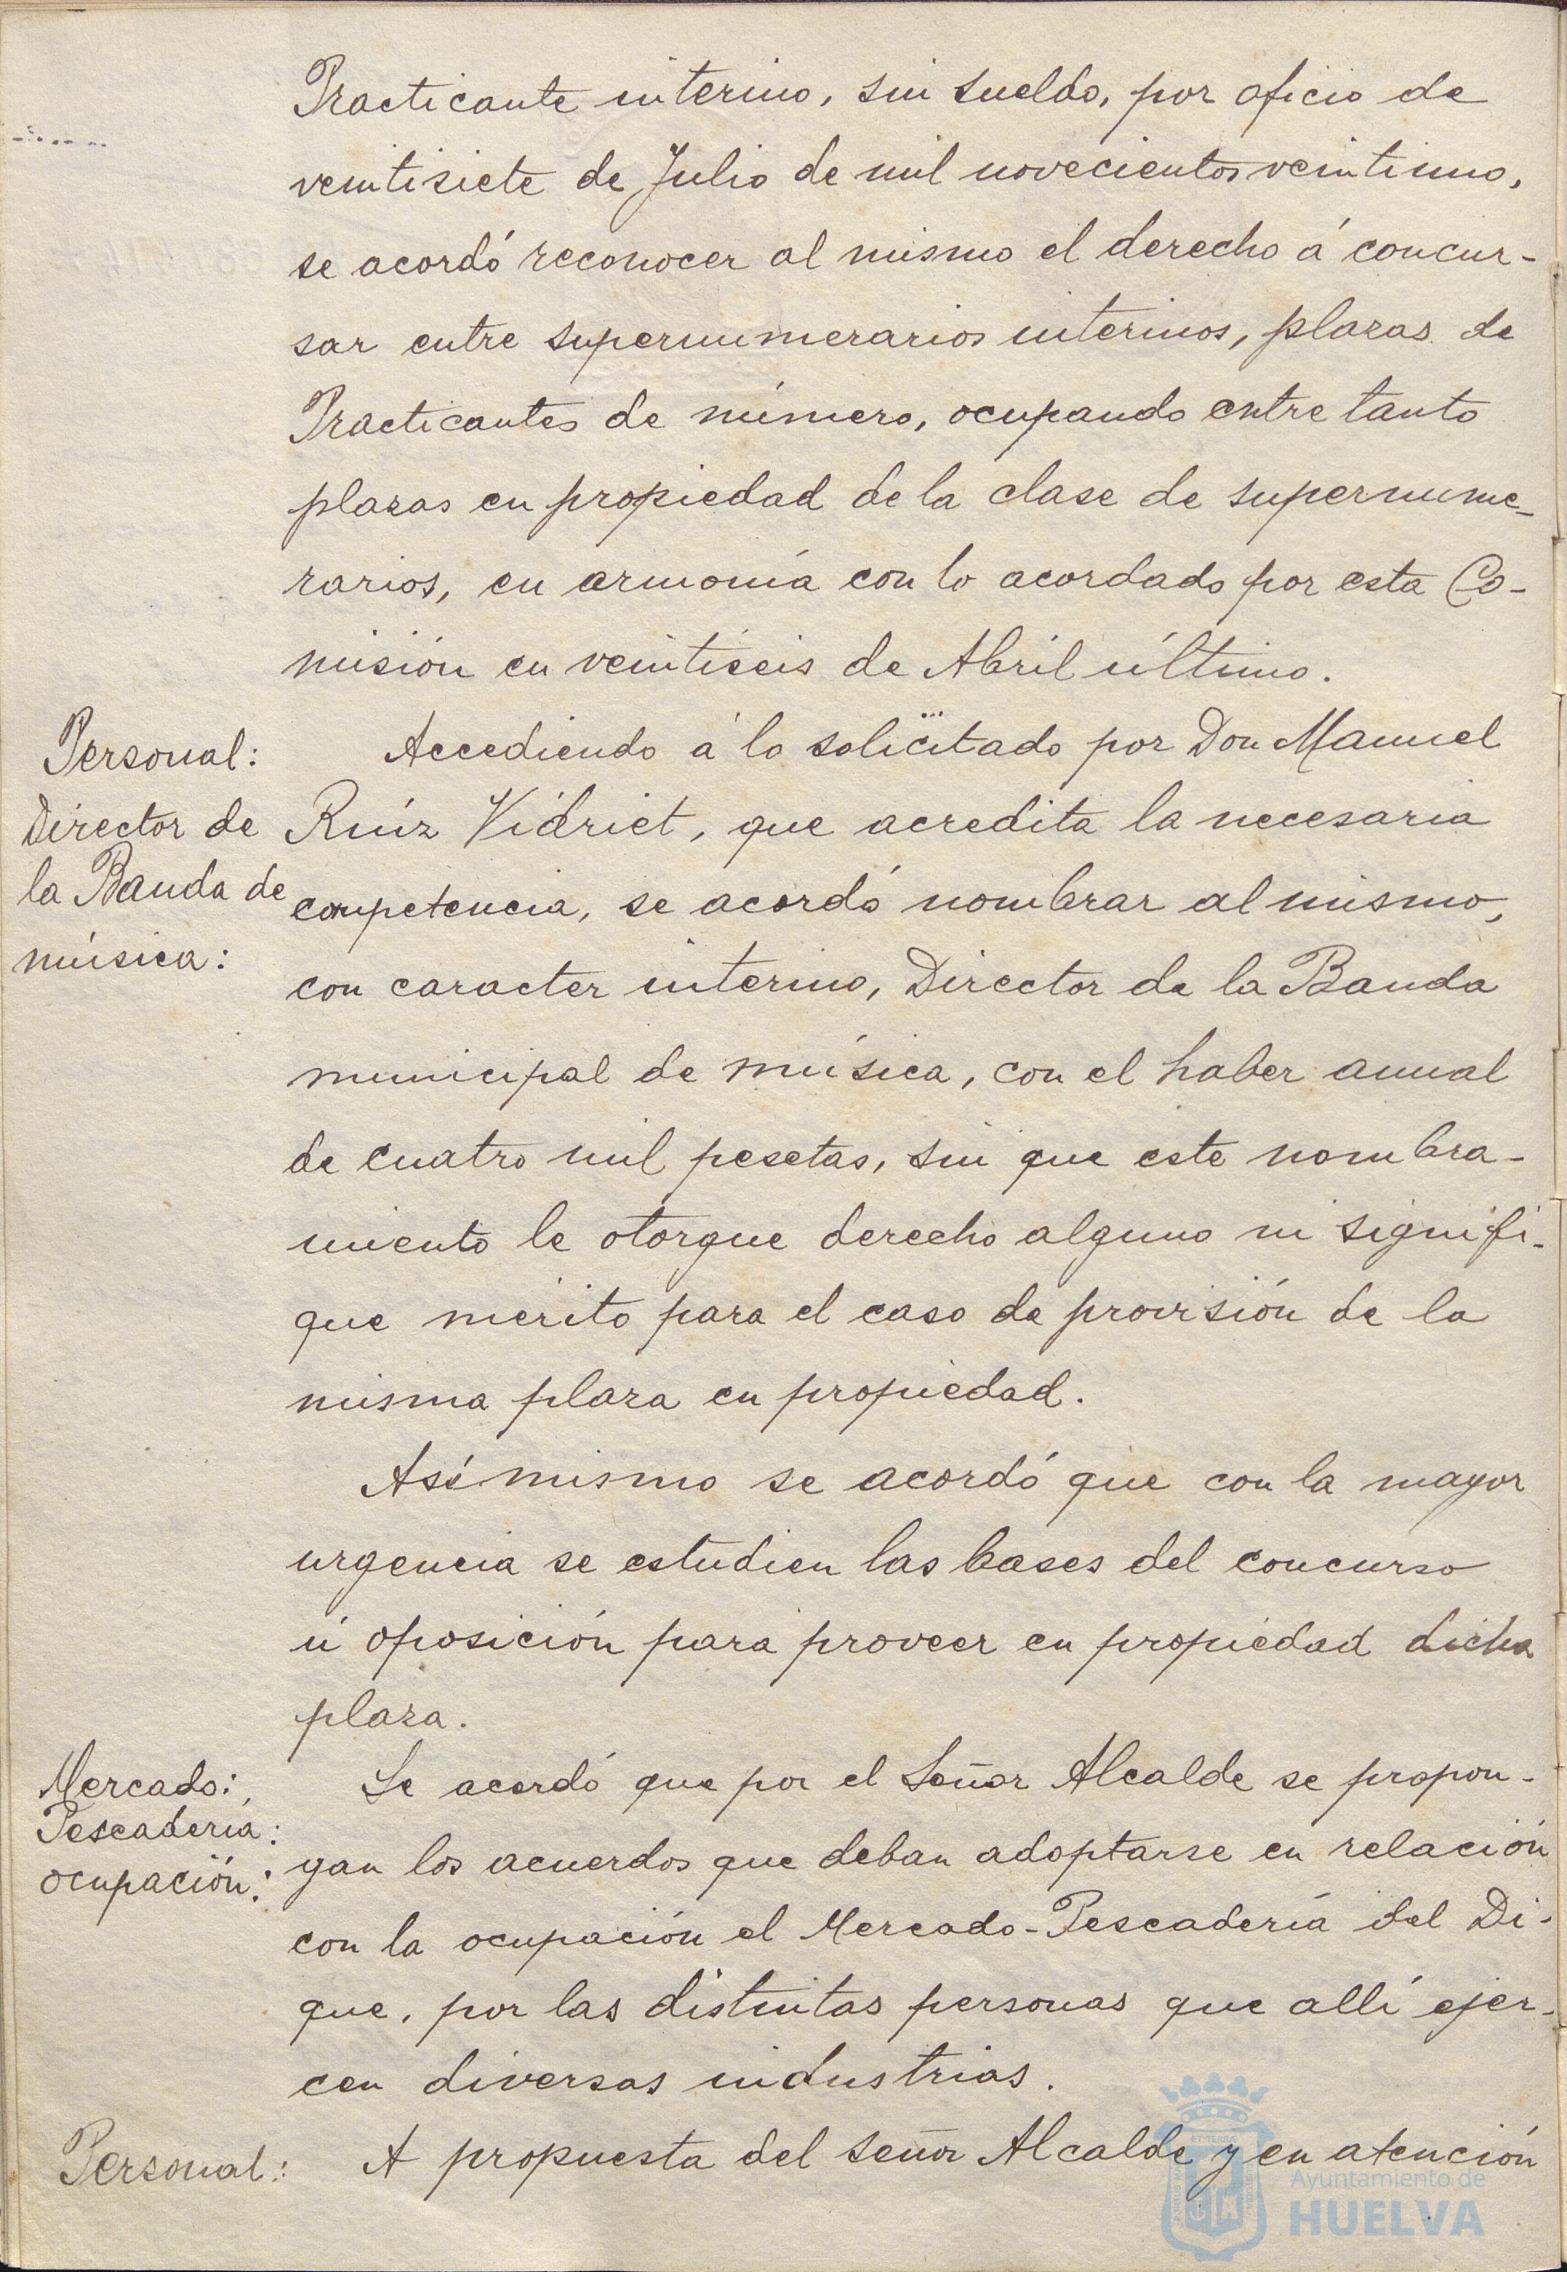 Practicante interino, sin sueldo, por oficio de
veintisiete de Julio de mil novecientos veintiuno,
se acordó reconocer al mismo el derecho á concur-
sar entre supernumerarios interinos, plazas de
Practicantes de número, ocupando entre tanto
plazas en propiedad de la clase de supernume-
rarios, en armonía con lo acordado por esta Co-
misión en veintiseis de Abril último.
Personal:
Director de
la Banda de
música:
Accediendo á lo solicitado por Don Manuel
Ruíz Vidriet, que acredita la necesaria
competencia, se acordó nombrar al mismo,
con caracter interino, Director de la Banda
municipal de música, con el haber anual
de cuatro mil pesetas, sin que este nombra-
miento le otorgue derecho alguno ni signifi-
que mérito para el caso de provisión de la
misma plaza en propiedad.
Así mismo se acordó que con la mayor
urgencia se estudien las bases del concurso
ú oposición para proveer en propiedad dicha
plaza.
Mercado:
Pescadería:
ocupación:
Se acordó que por el Señor Alcalde se propon-
gan los acuerdos que deban adoptarse en relación
con la ocupación el Mercado-Pescadería del Di-
que, por las distintas personas que allí ejer-
cen diversas industrias.
Personal:
A propuesta del señor Alcalde y en atención
Ayuntamiento de
HUELVA